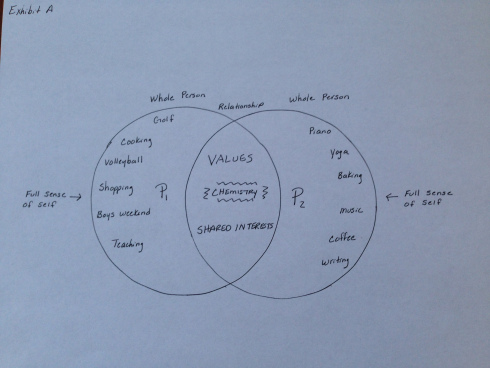 Exhibit A
Whole Person
Relationship
Whole Person
Golf
Cooking
Volleyball
Shopping
Boys weekend
Teaching
P1
Full Sense
of Self
VALUES
CHEMISTRY
SHARED INTERESTS
P2
Piano
Yoga
Baking
music
Coffee
Writing
Full Sense
of Self